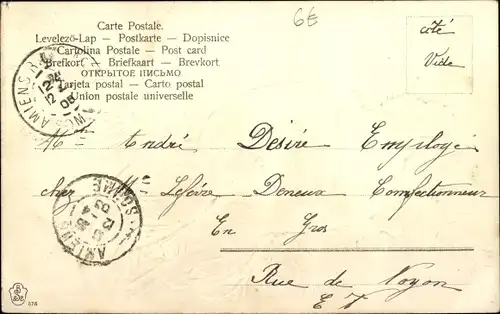 6E
Carte Postale.
Levelező-Lap — Postkarte — Dopisnice
Cartolina Postale — Post card
Brefkort — Briefkaart — Brevkort
ОТКРЫТОЕ ПИСЬМО
Tarjeta postal — Carto postal
Union postale universelle
côté
Vide
AMIENS
Mr André Désiré Employé
chez Mr Lefèvre Deneux Confectionneur
AMIENS SOMME
En Gros
Rue de Noyon
E V